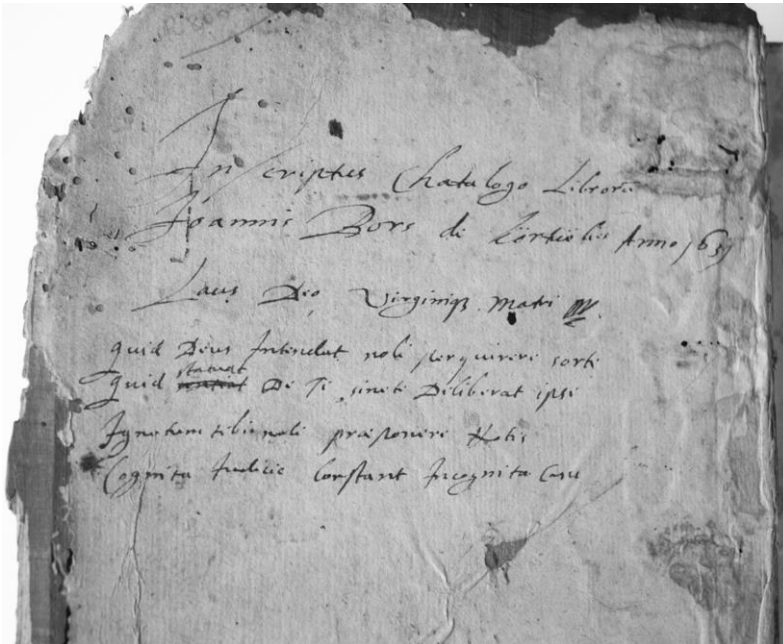 Inscriptus Chatalogo Librorū
Joannis Bors de Anno 165
Laus Deo Virginiq3 Matri
quid Deus Intendat noli perquirere sorte
statuat
quid De Te sinete Deliberat ipse
Ignotum tibi noli præponere Notis
Cognita Iudicio Constant Incognita Casu